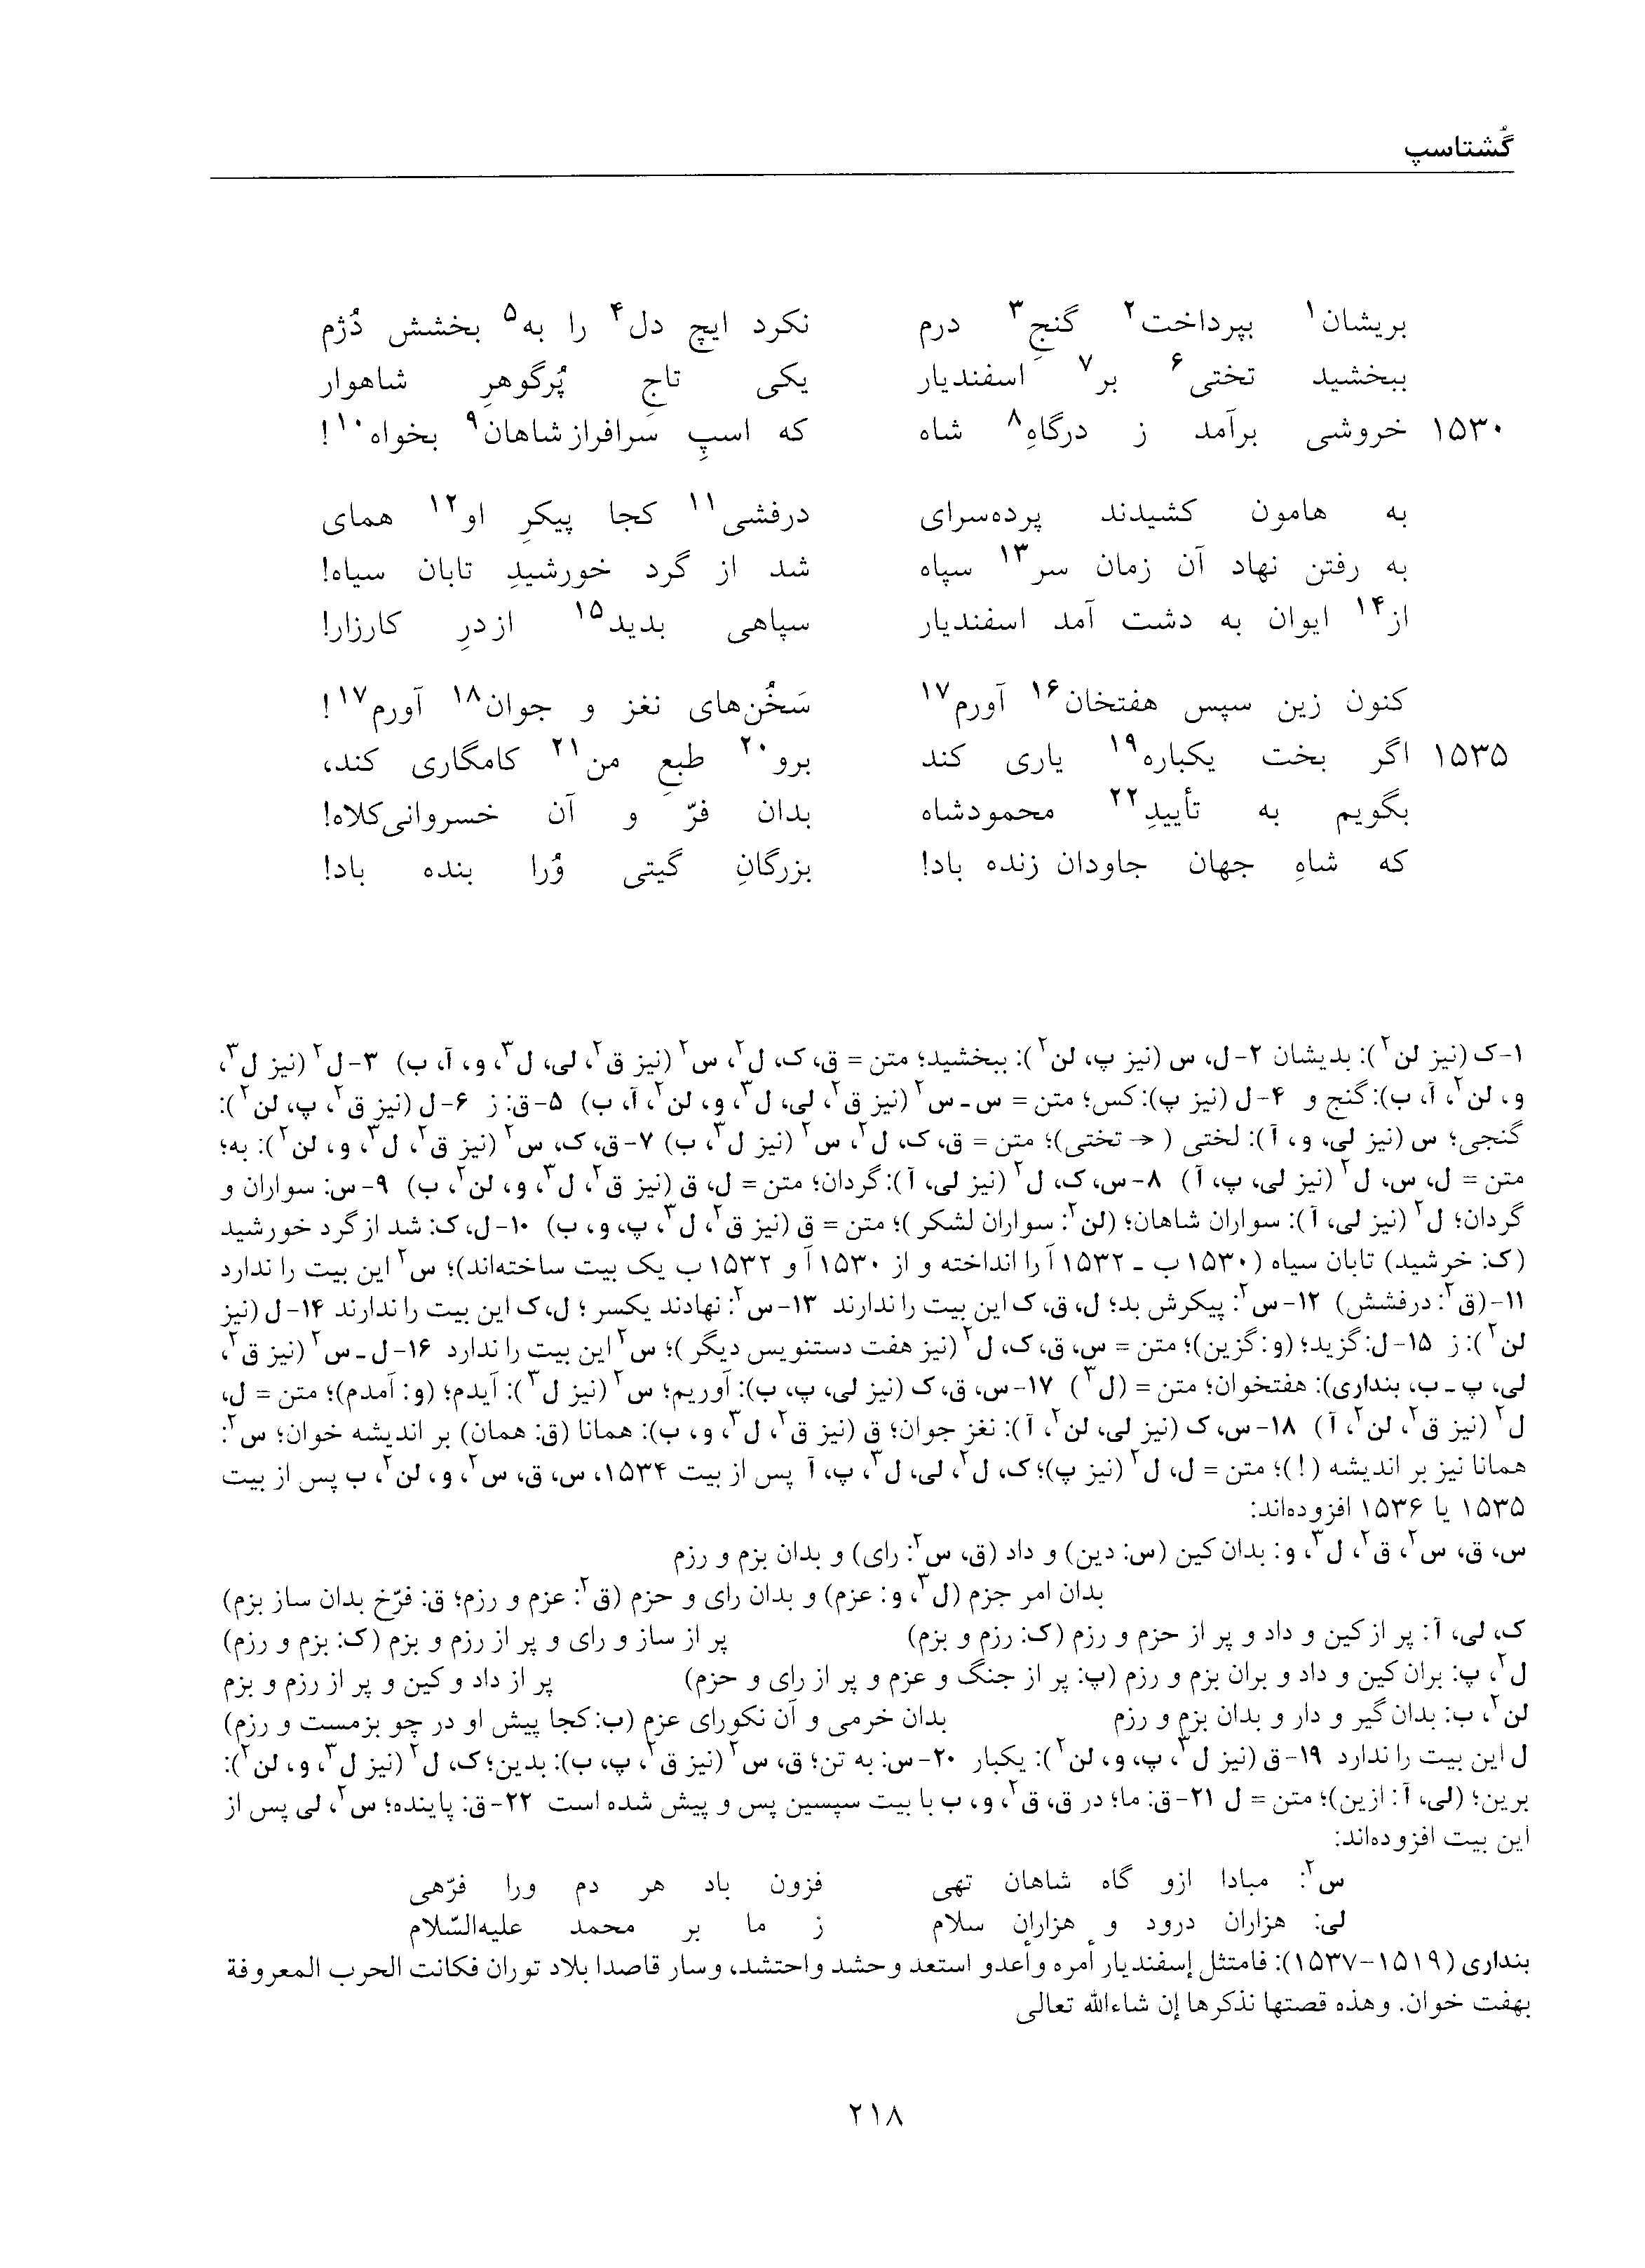 گُشتاسپ
بریشان۱ بپرداخت۲ گنجِ۳ درم نکرد ایچ دل۴ را به۵ بخشش دُژم
ببخشید تختی۶ بر۷ اسفندیار یکی تاجِ پُرگوهرِ شاهوار
۱۵۳۰ خروشی برآمد ز درگاهِ۸ شاه که اسپِ سرافراز شاهان۹ بخواه۱۰!
به هامون کشیدند پرده‌سرای درفشی۱۱ کجا پیکرِ او۱۲ همای
به رفتن نهاد آن زمان سر۱۳ سپاه شد از گرد خورشیدِ تابان سیاه!
از۱۴ ایوان به دشت آمد اسفندیار سپاهی بدید۱۵ ازدرِ کارزار!
کنون زین سپس هفتخان۱۶ آورم۱۷ سَخُن‌های نغز و جوان۱۸ آورم۱۷!
۱۵۳۵ اگر بخت یکباره۱۹ یاری کند برو۲۰ طبعِ من۲۱ کامگاری کند،
بگویم به تأییدِ۲۲ محمودشاه بدان فرّ و آن خسروانی‌کلاه!
که شاهِ جهان جاودان زنده باد! بزرگانِ گیتی وُرا بنده باد!
۱-ک (نیز لن۲): بدیشان ۲-ل، س (نیز پ، لن۲): ببخشید؛ متن = ق، ک، ل۲، س۲ (نیز ق۲، لی، ل۳، و، آ، ب) ۳-ل۲ (نیز ل۳،
و، لن۲، آ، ب): گنج و ۴-ل (نیز پ): کس؛ متن = س-س۲ (نیز ق۲، لی، ل۳، و، لن۲، آ، ب) ۵-ق: ز ۶-ل (نیز ق۲، پ، لن۲):
گنجی؛ س (نیز لی، و، آ): لختی (→ تختی)؛ متن = ق، ک، ل۲، س۲ (نیز ل۳، ب) ۷-ق، ک، س۲ (نیز ق۲، ل۳، و، لن۲): به؛
متن = ل، س، ل۲ (نیز لی، پ، آ) ۸-س، ک، ل۲ (نیز لی، آ): گردان؛ متن = ل، ق (نیز ق۲، ل۳، و، لن۲، ب) ۹-س: سواران و
گردان؛ ل۲ (نیز لی، آ): سواران شاهان؛ (لن۲: سواران لشکر)؛ متن = ق (نیز ق۲، ل۳، پ، و، ب) ۱۰-ل، ک: شد از گرد خورشید
(ک: خرشید) تابان سیاه (۱۵۳۰ ب - ۱۵۳۲ آ را انداخته و از ۱۵۳۰ آ و ۱۵۳۲ ب یک بیت ساخته‌اند)؛ س۲ این بیت را ندارد
۱۱-(ق۲: درفشش) ۱۲-س۲: پیکرش بد؛ ل، ق، ک این بیت را ندارند ۱۳-س۲: نهادند یکسر؛ ل، ک این بیت را ندارند ۱۴-ل (نیز
لن۲): ز ۱۵-ل: گزید؛ (و: گزین)؛ متن = س، ق، ک، ل۲ (نیز هفت دستنویس دیگر)؛ س۲ این بیت را ندارد ۱۶-ل-س۲ (نیز ق۲،
لی، پ-ب، بنداری): هفتخوان؛ متن = (ل۳) ۱۷-س، ق، ک (نیز لی، پ، ب): آوریم؛ س۲ (نیز ل۳): آیدم؛ (و: آمدم)؛ متن = ل،
ل۲ (نیز ق۲، لن۲، آ) ۱۸-س، ک (نیز لی، لن۲، آ): نغز جوان؛ ق (نیز ق۲، ل۳، و، ب): همانا (ق: همان) بر اندیشه خوان؛ س۲:
همانا نیز بر اندیشه (!)؛ متن = ل، ل۲ (نیز پ)؛ ک، ل۲، لی، ل۳، پ، آ پس از بیت ۱۵۳۴، س، ق، س۲، و، لن۲، ب پس از بیت
۱۵۳۵ یا ۱۵۳۶ افزوده‌اند:
س، ق، س۲، ق۲، ل۳، و: بدان کین (س: دین) و داد (ق، س۲: رای) و بدان بزم و رزم
بدان امر جزم (ل۳، و: عزم) و بدان رای و حزم (ق۲: عزم و رزم؛ ق: فرّخ بدان ساز بزم)
ک، لی، آ: پر از کین و داد و پر از حزم و رزم (ک: رزم و بزم) پر از ساز و رای و پر از رزم و بزم (ک: بزم و رزم)
ل۲، پ: بران کین و داد و بران بزم و رزم (پ: پر از جنگ و عزم و پر از رای و حزم) پر از داد و کین و پر از رزم و بزم
لن۲، ب: بدان گیر و دار و بدان بزم و رزم بدان خرمی و آن نکورای عزم (ب: کجا پیش او در چو بزمست و رزم)
ل این بیت را ندارد ۱۹-ق (نیز ل۳، پ، و، لن۲): یکبار ۲۰-س: به تن؛ ق، س۲ (نیز ق۲، پ، ب): بدین؛ ک، ل۲ (نیز ل۳، و، لن۲):
برین؛ (لی، آ: ازین)؛ متن = ل ۲۱-ق: ما؛ در ق، ق۲، و، ب با بیت سپسین پس و پیش شده است ۲۲-ق: پاینده؛ س۲، لی پس از
این بیت افزوده‌اند:
س۲: مبادا ازو گاه شاهان تهی فزون باد هر دم ورا فرّهی
لی: هزاران درود و هزاران سلام ز ما بر محمد علیه‌السّلام
بنداری (۱۵۱۹-۱۵۳۷): فامتثل إسفندیار أمره وأعدو استعد وحشد واحتشد، وسار قاصدا بلاد توران فکانت الحرب المعروفة
بهفت خوان. وهذه قصتها نذکرها إن شاءالله تعالی
۲۱۸